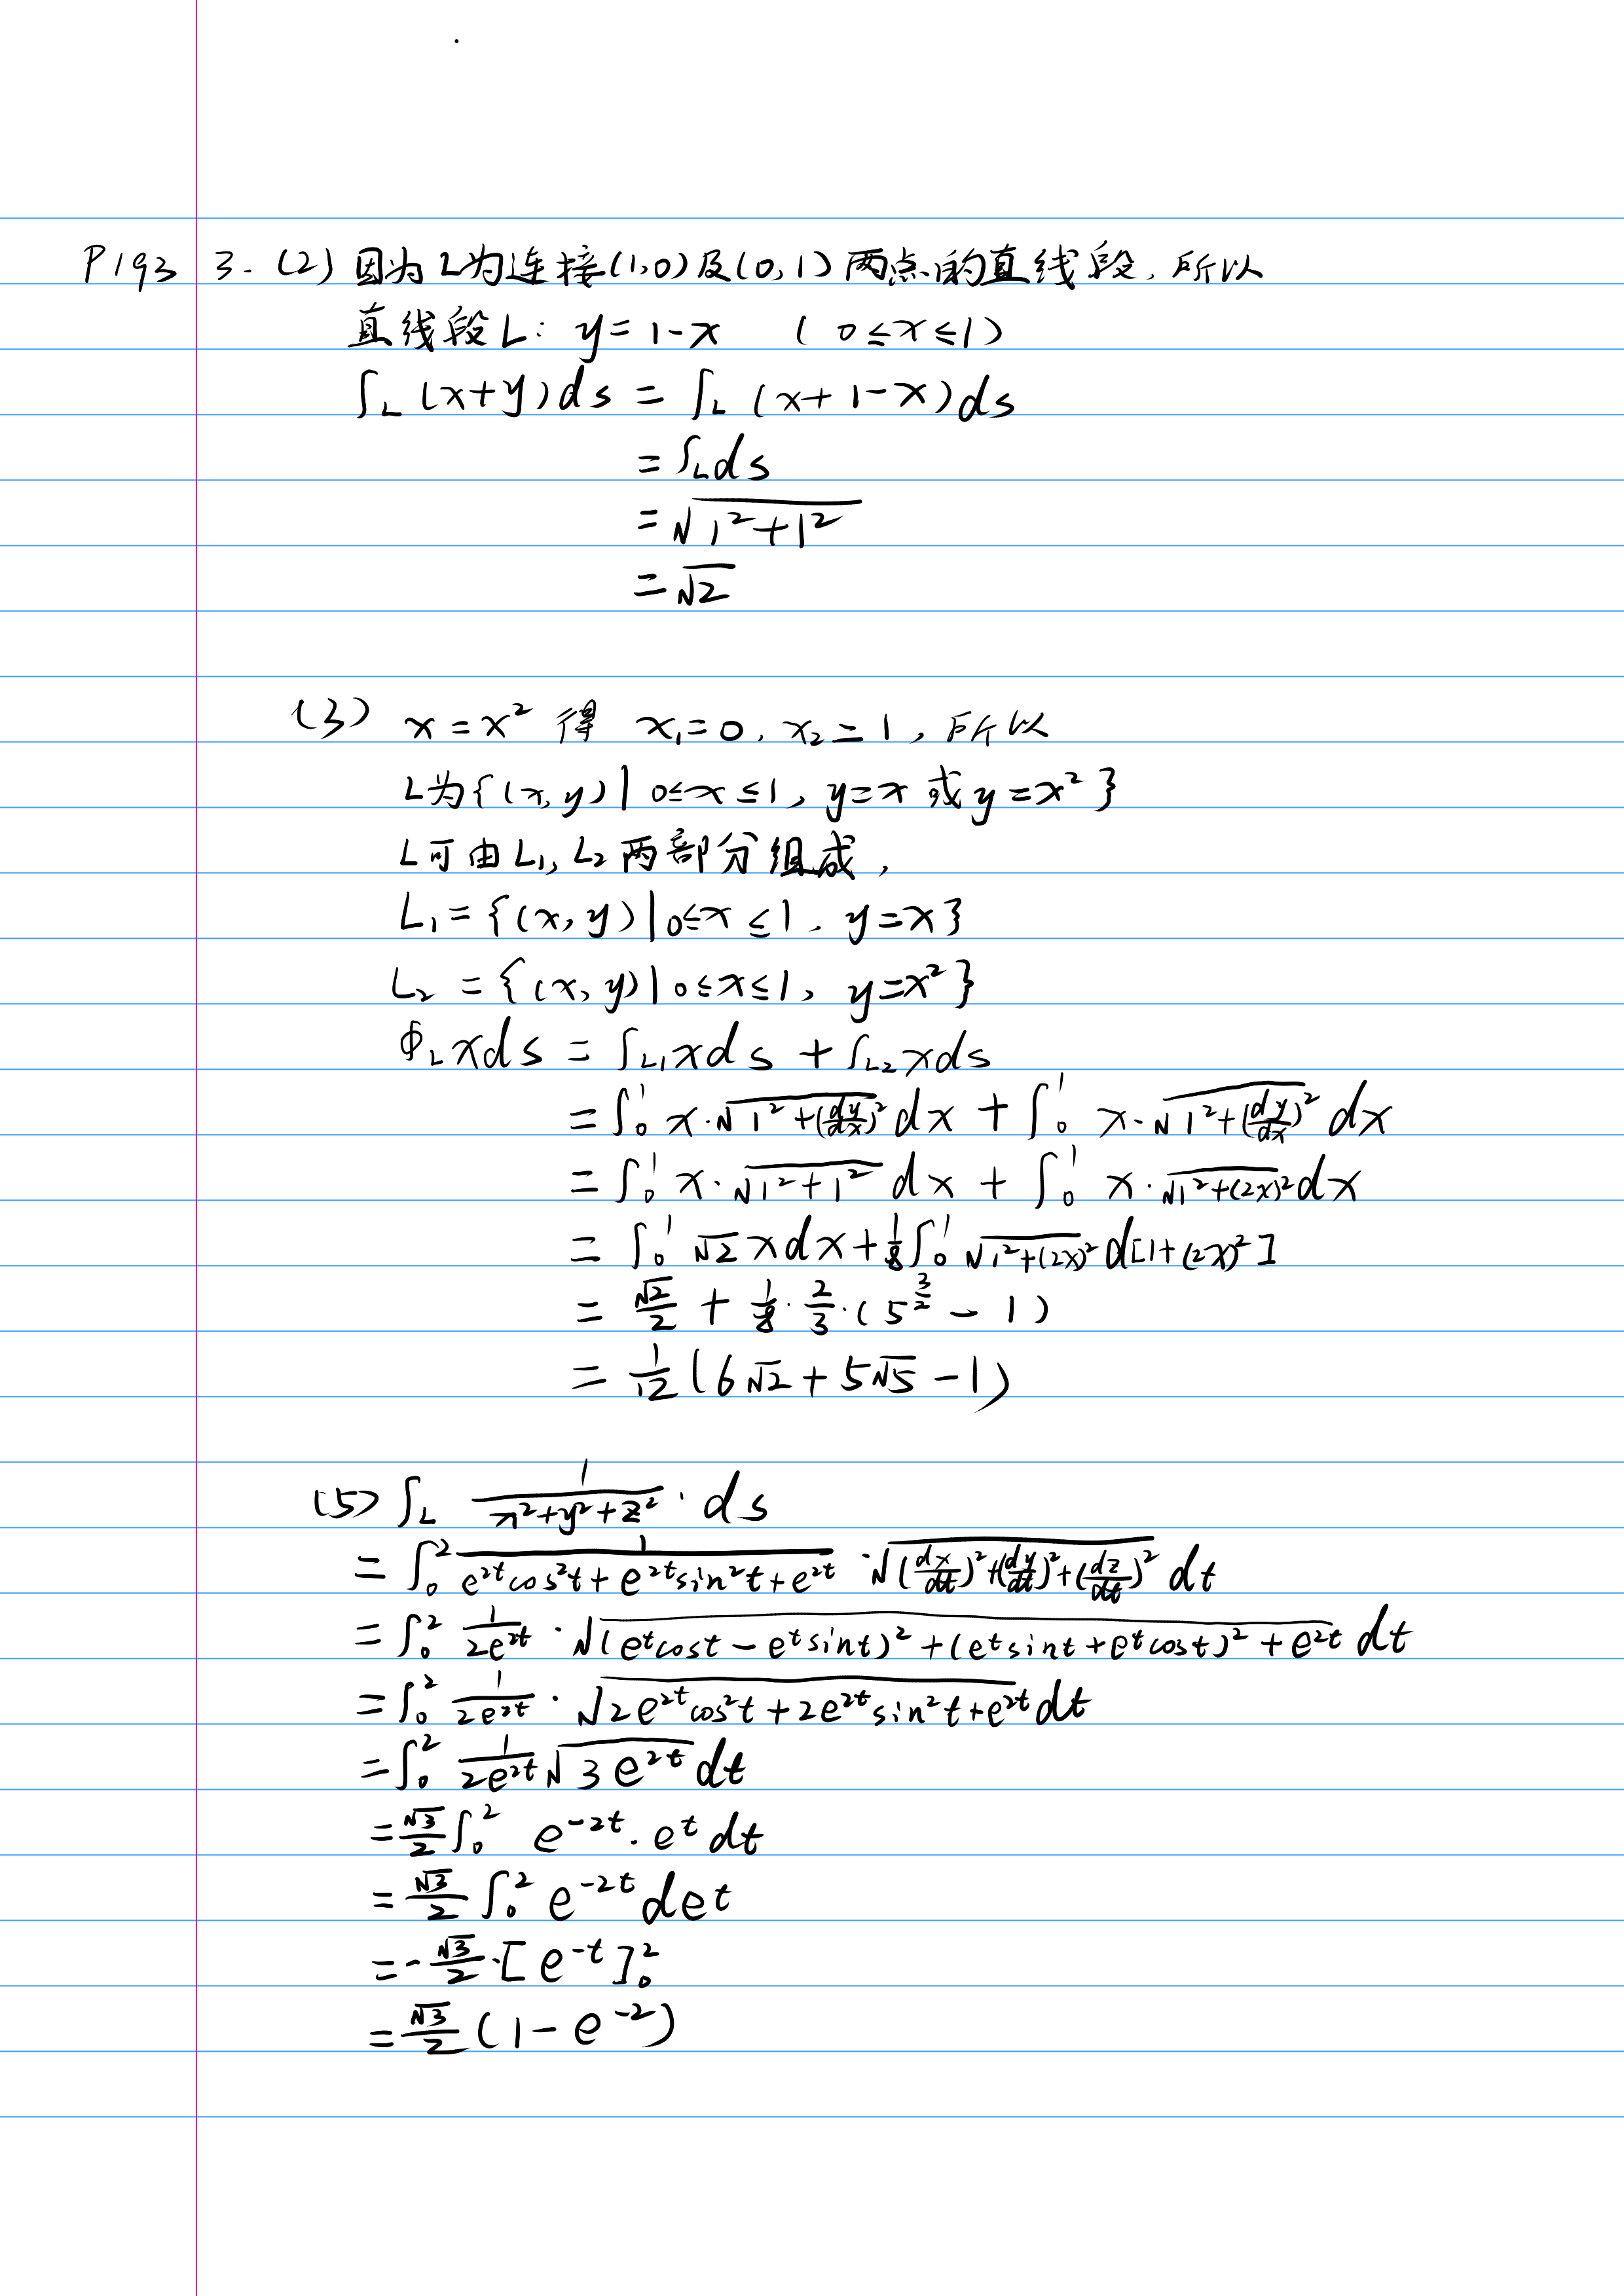 P193 3. (2) 因为L为连接(1,0)及(0,1)两点的直线段,所以
直线段L: y=1-x (0≤x≤1)
∫_L (x+y)ds = ∫_L (x+1-x)ds
=∫_L ds
=√(1²+1²)
=√2
(3) x=x² 得 x₁=0, x₂=1, 所以
L为{(x,y)|0≤x≤1, y=x 或 y=x²}
L可由L₁,L₂两部分组成,
L₁={(x,y)|0≤x≤1, y=x}
L₂={(x,y)|0≤x≤1, y=x²}
∮_L xds = ∫_{L₁} xds + ∫_{L₂} xds
=∫₀¹ x·√(1²+(dy/dx)²) dx + ∫₀¹ x·√(1²+(dy/dx)²) dx
=∫₀¹ x·√(1²+1²) dx + ∫₀¹ x·√(1²+(2x)²) dx
=∫₀¹ √2 xdx + 1/8 ∫₀¹ √(1²+(2x)²) d[1+(2x)²]
= √2/2 + 1/8 · 2/3 · (5^{3/2} - 1)
= 1/12 (6√2 + 5√5 - 1)
(5) ∫_L 1/(x²+y²+z²) · ds
=∫₀² 1/(e^{2t}cos²t+e^{2t}sin²t+e^{2t}) · √((dx/dt)²+(dy/dt)²+(dz/dt)²) dt
=∫₀² 1/(2e^{2t}) · √((e^t cost - e^t sint)²+(e^t sint+e^t cost)²+e^{2t}) dt
=∫₀² 1/(2e^{2t}) · √(2e^{2t}cos²t+2e^{2t}sin²t+e^{2t}) dt
=∫₀² 1/(2e^{2t}) √(3e^{2t}) dt
=√3/2 ∫₀² e^{-2t}·e^t dt
=√3/2 ∫₀² e^{-2t} de^t
=-√3/2·[e^{-t}]₀²
=√3/2 (1-e^{-2})